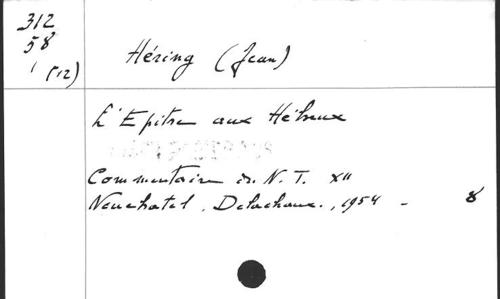 312
58
(12)
Héring (Jean)
L'Epitre aux Hébreux
Commentaire du N. T. XII
Neuchatel, Delachaux., 1954 - 8